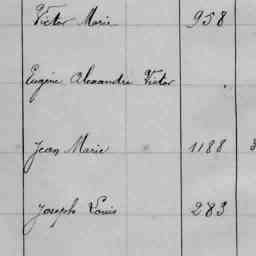 Victor Marie 958
Eugène Alexandre Victor
Jean Marie 1188
Joseph Louis 283